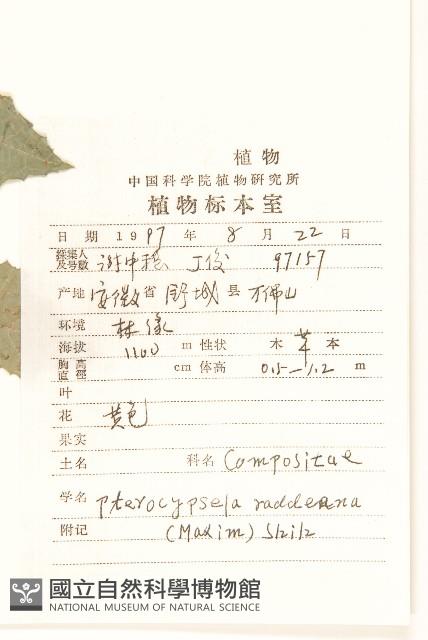 植物
中国科学院植物研究所
植物标本室
日 期 1997 年 8 月 22 日
採集人及号数 谢中稳 丁俊 97157
产地 安徽省 舒城县 万佛山
环境 林缘
海拔 1100 m 性状 木 草 本
胸高直径 cm 体高 0.5—1.2 m
叶
花 黄色
果实
土名 科名 Compositae
学名 Pterocypsela raddeana
附记 (Maxim) Shih
國立自然科學博物館
NATIONAL MUSEUM OF NATURAL SCIENCE